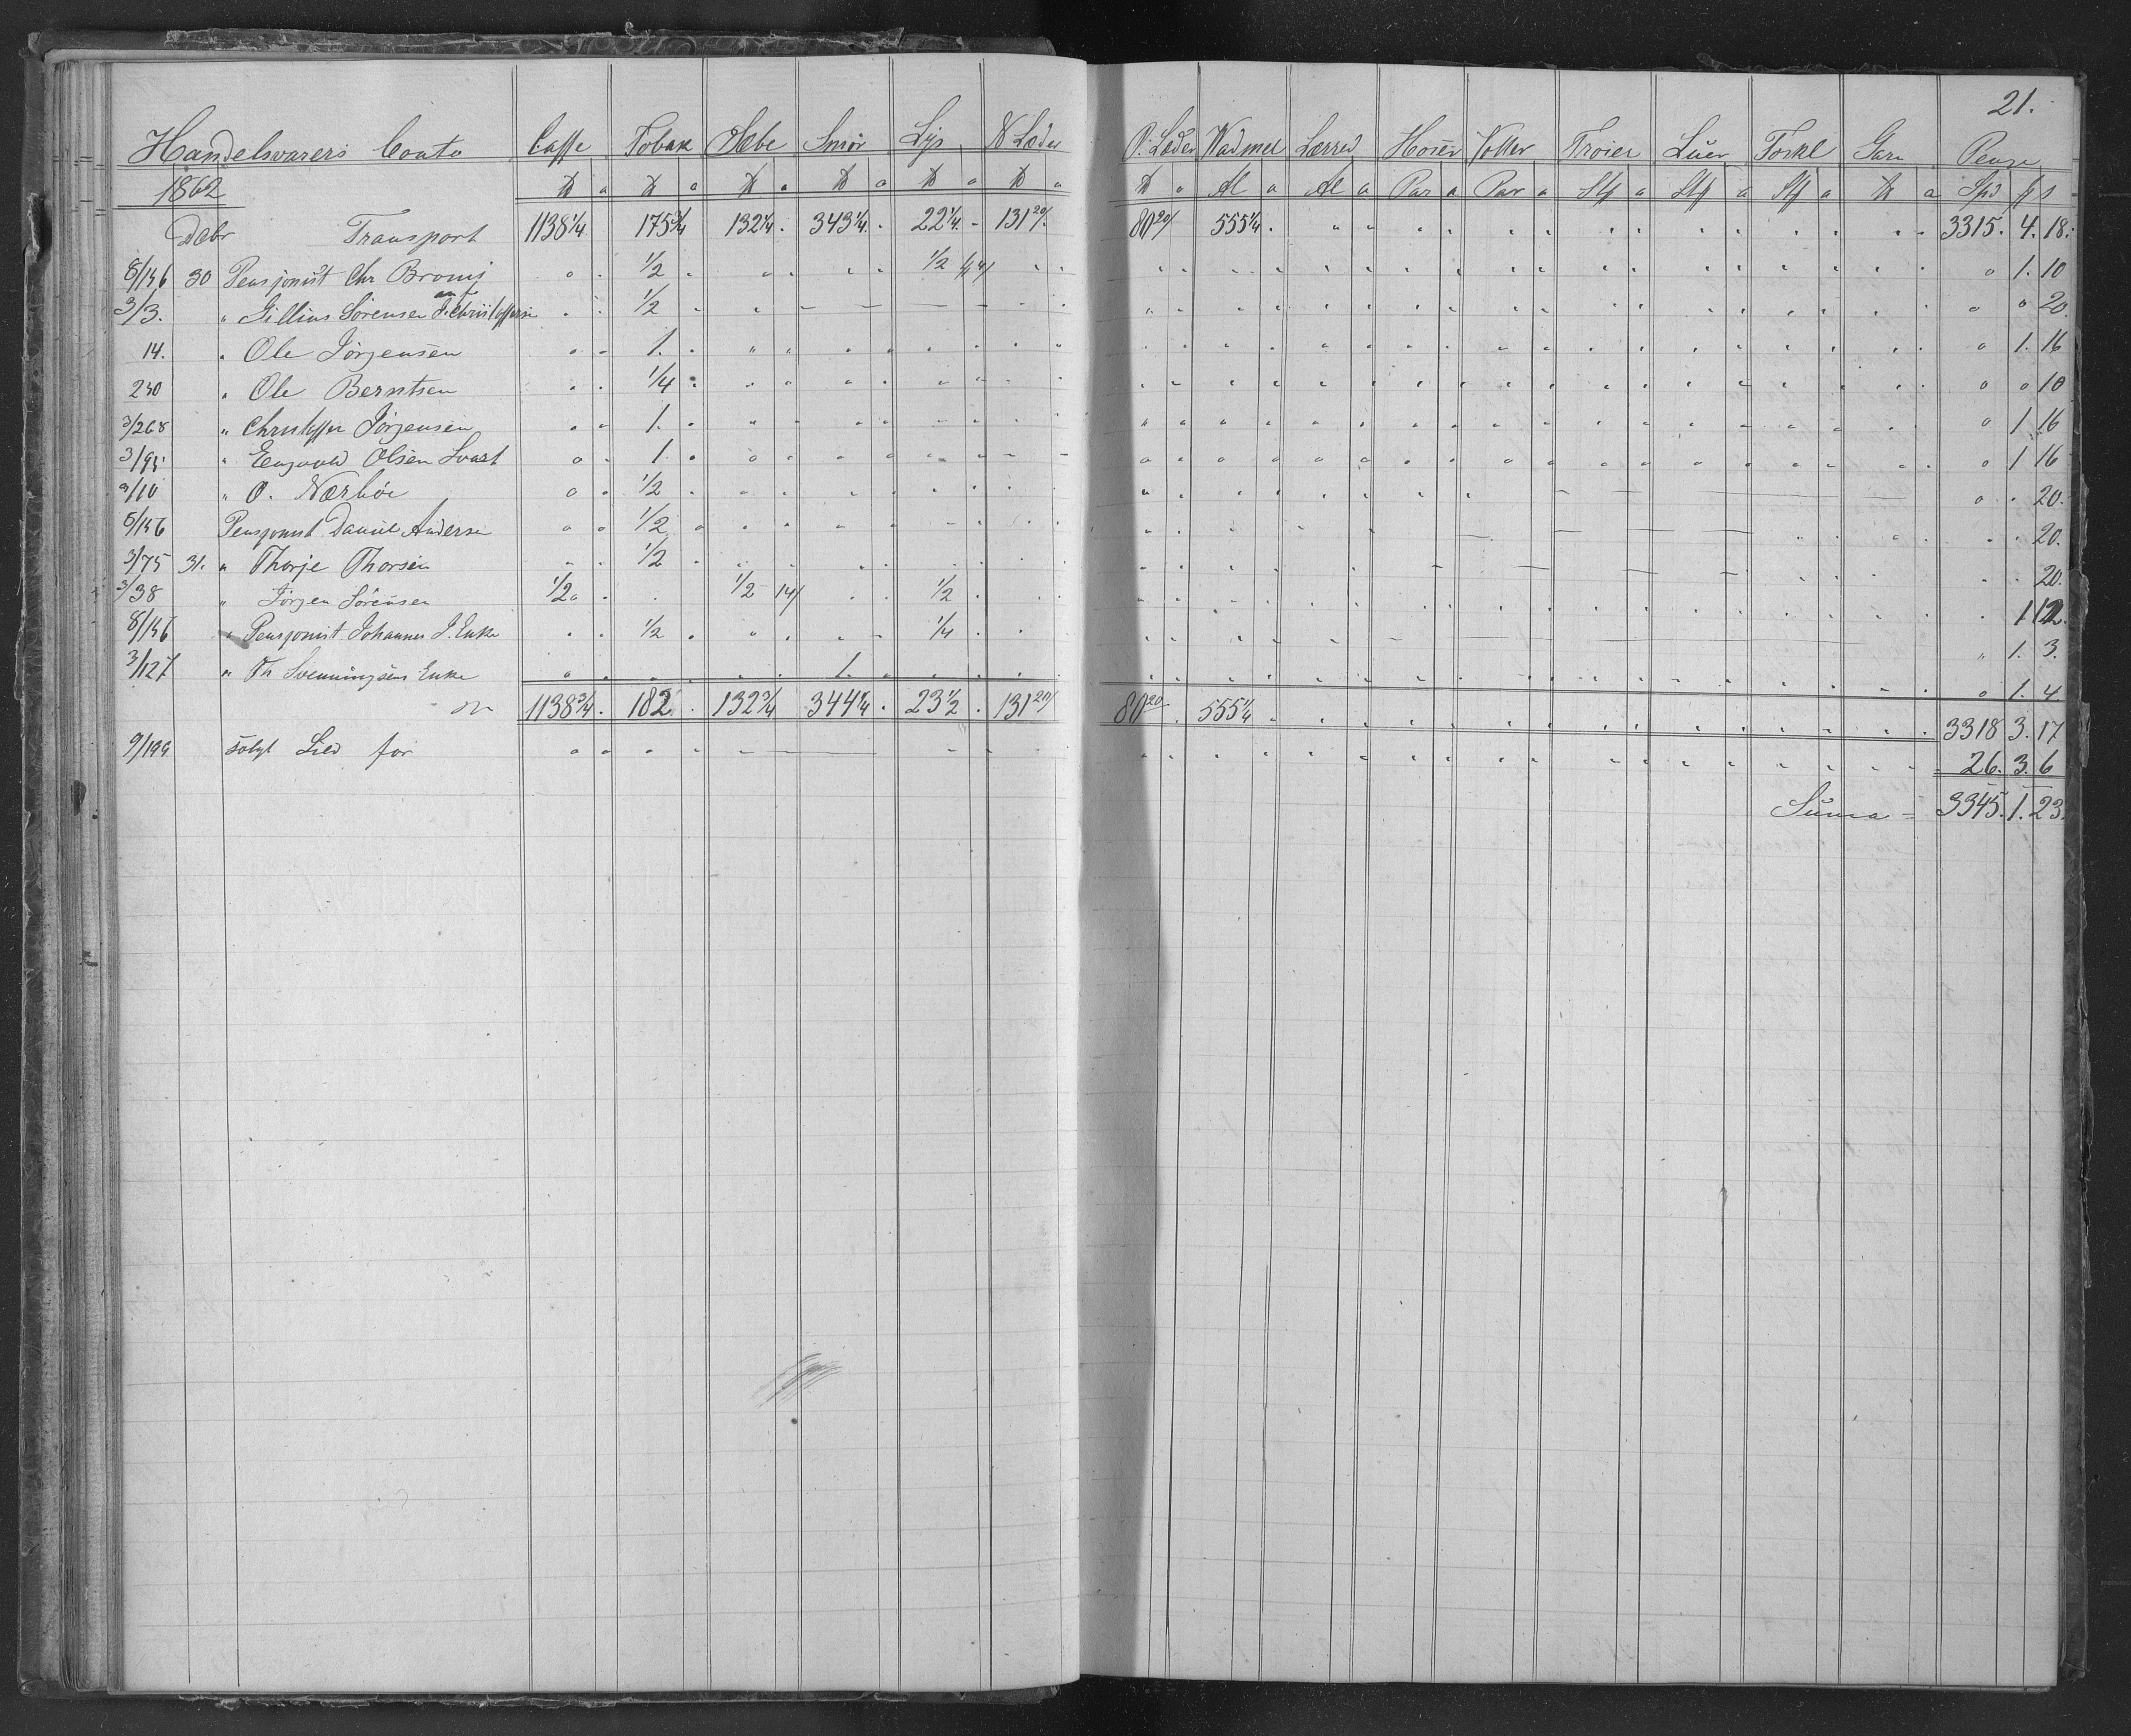 21.
Handelsvarers Conto Caffe Tobak Sæbe Smør Lys N Læder P. Læder Wadmel Lærred Hoser Votter Trøier Luer Tørkl Garn Penge
1862 ℔ a ℔ a ℔ a ℔ a ℔ a ℔ a ℔ a Al a Al a Par a Par a Stk a Stk a Stk a ℔ a Spd ß s
Debr Transport 1138 1/4 175 3/4 132 1/4 343 1/4 22 1/4 131 20/ 80 20/ 555 1/4 3315. 4. 18.
8/156 30 Pensjonist Chr Bromj 1/2 1/2 1. 10
3/3. " Gillius Sørensen J. Christoffersen 1/2 20.
14. " Ole Jörgensen 1. 1. 16
230 " Ole Berntsen 1/4 10
3/268 " Christoffer Jörgensen 1. 1 16
3/95 " Engvald Olsen Svart 1. 1 16
3/10 " O. Nærböe 1/2 20.
8/156 Pensjonist Daniel Andersen 1/2 20.
3/75 31. " Thorje Thorsen 1/2 20.
3/38 " Jörgen Sörensen 1/2 1/2 14/ 1/2 1 12.
8/156 " Pensjonist Johannes J. Enke 1/2 1/4 1. 3.
3/127 " Th Svenningsens Enke 1. 1. 4
1138 3/4 182 132 3/4 344 1/4 23 1/2 131 20/ 80 20 555 1/4 3318 3. 17
9/199 solgt Sild for 26. 3. 6
Suma = 3345. 1. 23.